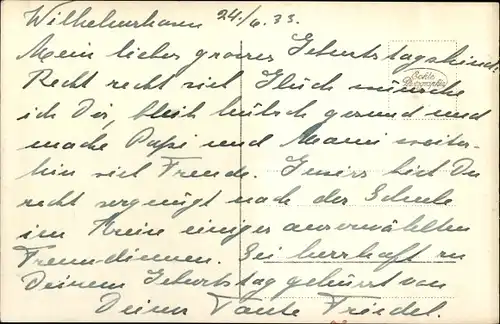 Wilhelmshaven 24./6.33.
Mein liebes grosses Geburtstagskind.
Recht recht viel Glück wünsche
ich Dir, bleib hübsch gesund und
mache Papi und Mami weiter-
hin viel Freude. Gewiss bist Du
recht vergnügt nach der Schule
im Kreise einiger auserwählten
Freundinnen. Sei herzhaft zu
Deinem Geburtstag geküsst von
Deiner Tante Friedel.
Echte
Photographie